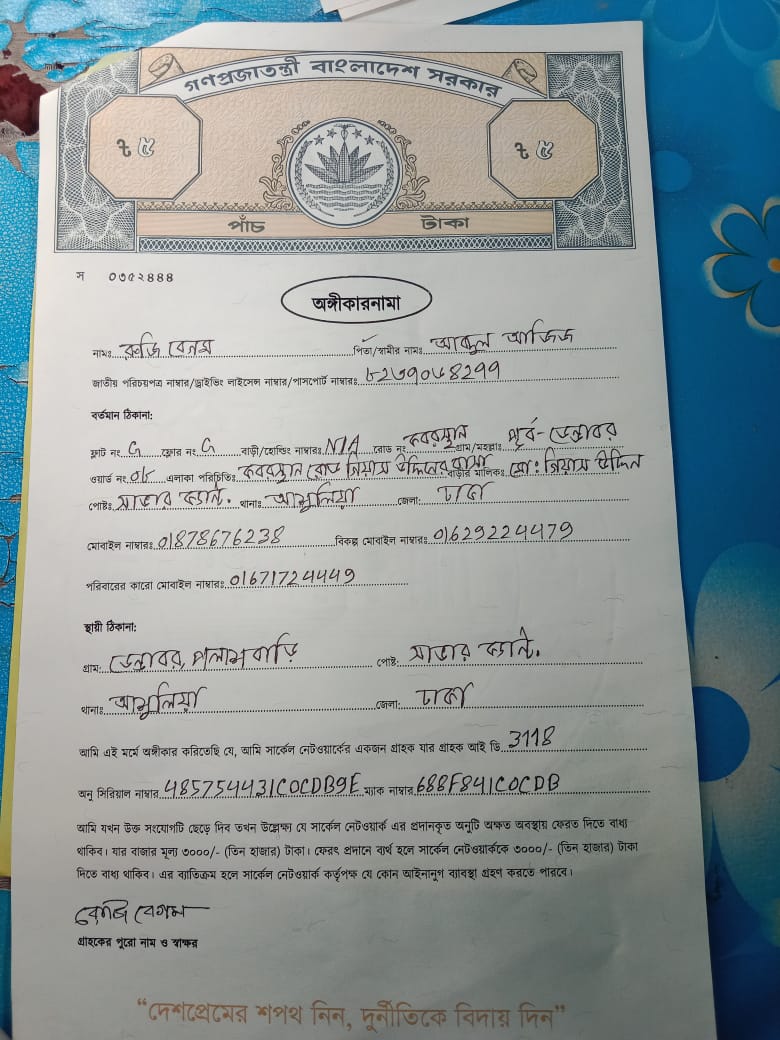 গণপ্রজাতন্ত্রী বাংলাদেশ সরকার
৳ ৫ ৳ ৫
পাঁচ টাকা
স ০৩৫২৪৪৪
অঙ্গীকারনামা
নামঃ রুজি বেগম পিতা/স্বামীর নামঃ আব্দুল আজিজ
জাতীয় পরিচয়পত্র নাম্বার/ড্রাইভিং লাইসেন্স নাম্বার/পাসপোর্ট নাম্বারঃ
বর্তমান ঠিকানা:
ফ্লাট নং G ফ্লোর নং G বাড়ী/হোল্ডিং নাম্বারঃ N/A রোড নং কবরস্থান গ্রাম/মহল্লাঃ পূর্ব-ডেন্ডাবর
ওয়ার্ড নং ০৮ এলাকা পরিচিতিঃ কবরস্থান রোড গিয়াস উদ্দিনের বাসা বাড়ীর মালিকঃ মো: গিয়াস উদ্দিন
পোষ্টঃ সাভার ক্যান্ট. থানাঃ আশুলিয়া জেলা: ঢাকা
মোবাইল নাম্বারঃ 01878676238 বিকল্প মোবাইল নাম্বারঃ 01629224479
পরিবারের কারো মোবাইল নাম্বারঃ 01671724449
স্থায়ী ঠিকানা:
গ্রাম: ডেন্ডাবর, পলাশবাড়ি পোষ্ট: সাভার ক্যান্ট.
থানাঃ আশুলিয়া জেলা: ঢাকা
আমি এই মর্মে অঙ্গীকার করিতেছি যে, আমি সার্কেল নেটওয়ার্কের একজন গ্রাহক যার গ্রাহক আই ডি 3118
অনু সিরিয়াল নাম্বার 485754431C0CDB9E ম্যাক নাম্বার 688F841C0CDB
আমি যখন উক্ত সংযোগটি ছেড়ে দিব তখন উল্লেখ্য যে সার্কেল নেটওয়ার্ক এর প্রদানকৃত অনুটি অক্ষত অবস্থায় ফেরত দিতে বাধ্য
থাকিব। যার বাজার মূল্য ৩০০০/- (তিন হাজার) টাকা। ফেরৎ প্রদানে ব্যর্থ হলে সার্কেল নেটওয়ার্ককে ৩০০০/- (তিন হাজার) টাকা
দিতে বাধ্য থাকিব। এর ব্যতিক্রম হলে সার্কেল নেটওয়ার্ক কর্তৃপক্ষ যে কোন আইনানুগ ব্যবস্থা গ্রহণ করতে পারবে।
রোজি বেগম
গ্রাহকের পুরো নাম ও স্বাক্ষর
“দেশপ্রেমের শপথ নিন, দুর্নীতিকে বিদায় দিন”